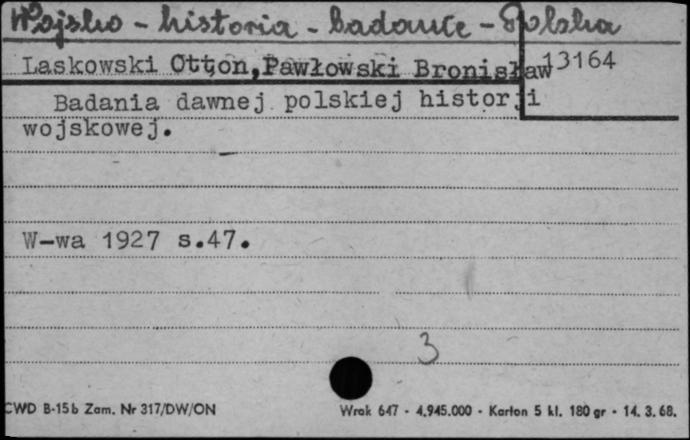 Wojsko - historia - badanie - Polska
Laskowski Otton,Pawłowski Bronisław 13164
Badania dawnej polskiej historji
wojskowej.
W-wa 1927 s.47.
3
CWD B-15b Zam. Nr 317/DW/ON Wrak 647 - 4.945.000 - Karton 5 kl. 180 gr - 14. 3. 68.